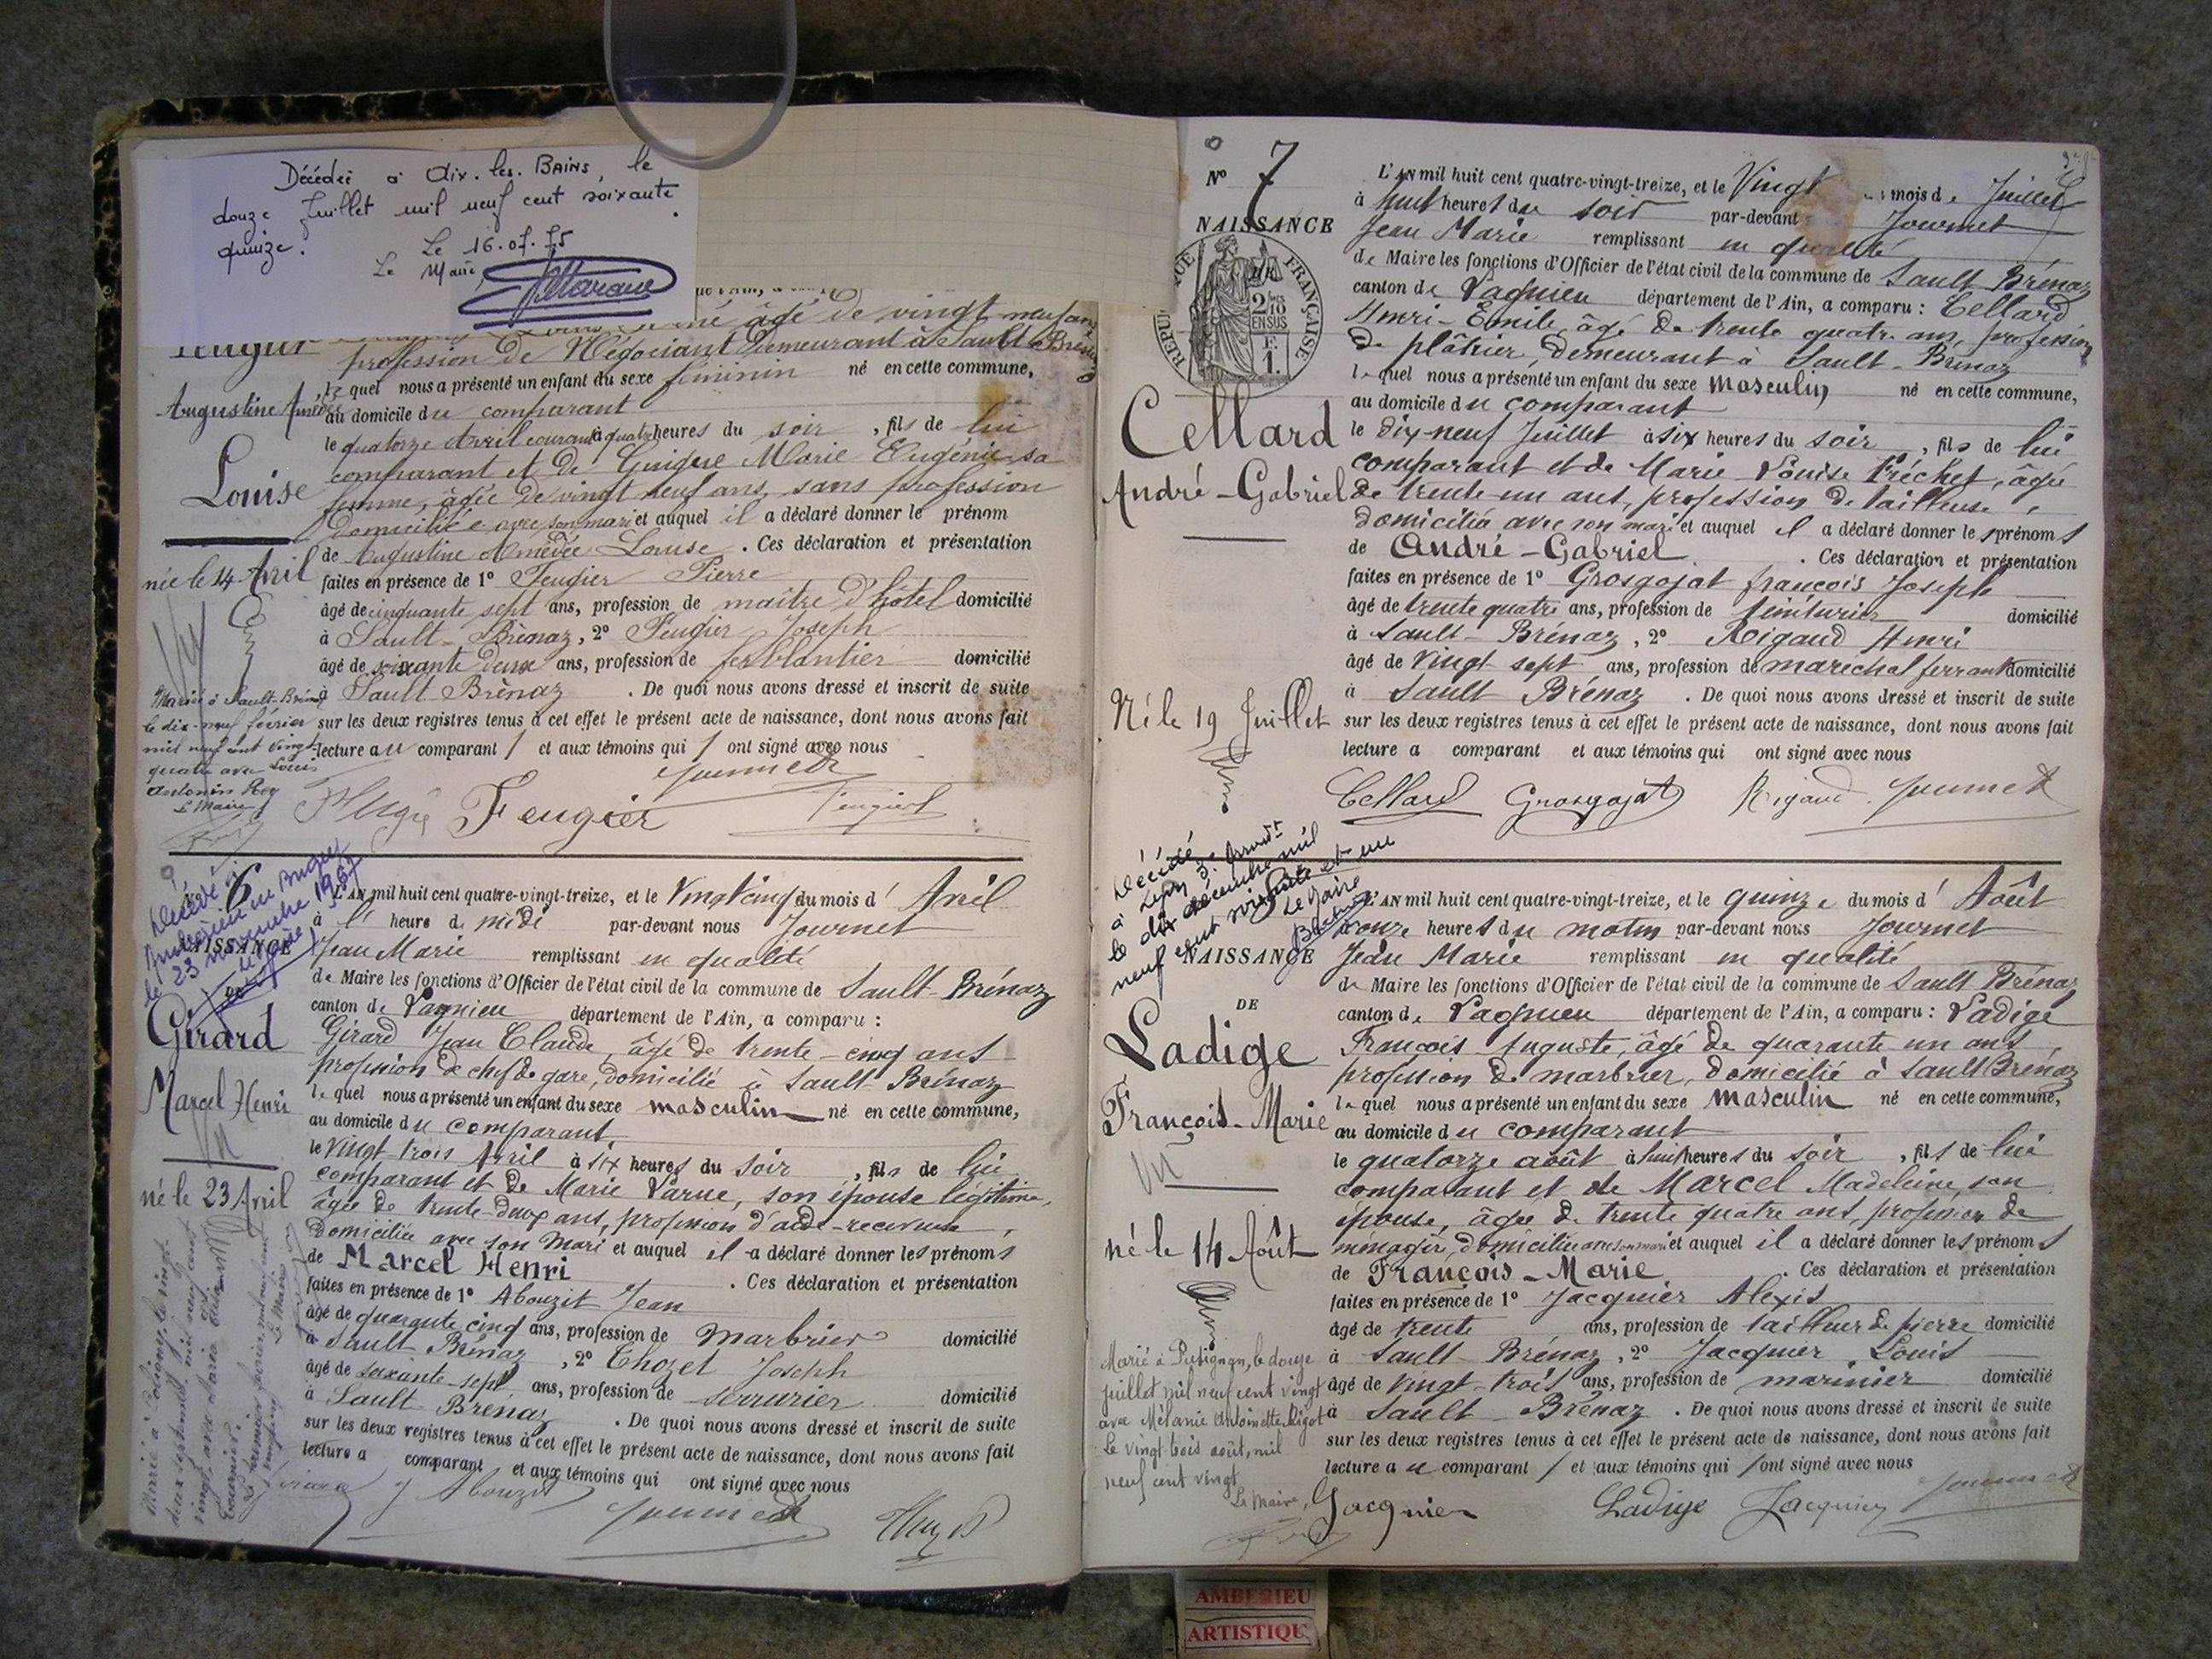 Décédée à Aix-les-BAINS, le
douze Juillet mil neuf cent soixante
quinze.
Le 16.07.75
Le Maire,
âgé de vingt neuf ans
profession de Négociant demeurant à Sault-Brénaz
lequel nous a présenté un enfant du sexe féminin né en cette commune,
Augustine Amédée
au domicile du comparant
le quatorze Avril courant à quatre heures du soir, fils de lui
comparant et de Guigue Marie Eugénie sa
Louise
femme, âgée de vingt neuf ans, sans profession
domiciliée avec son mari et auquel il a déclaré donner le prénom
de Augustine Amédée Louise. Ces déclaration et présentation
née le 14 Avril
faites en présence de 1º Feugier Pierre
âgé de cinquante sept ans, profession de maître d'hôtel domicilié
à Sault-Brénaz, 2º Feugier Joseph
âgé de soixante deux ans, profession de ferblantier domicilié
à Sault Brénaz. De quoi nous avons dressé et inscrit de suite
sur les deux registres tenus à cet effet le présent acte de naissance, dont nous avons fait
lecture au comparant et aux témoins qui ont signé avec nous
Mariée à Sault-Brénaz
le dix-neuf février
mil neuf cent vingt-
quatre avec Louis
Antonin Rey
Le Maire
Feugier
Journet
6
Décédé à
le 23 novembre 1967
NAISSANCE
L'AN mil huit cent quatre-vingt-treize, et le Vingt cinq du mois d'Avril
à l' heure de midi par-devant nous Journet
Jean Marie remplissant en qualité
de Maire les fonctions d'Officier de l'état civil de la commune de Sault-Brénaz
canton de Lagnieu département de l'Ain, a comparu :
Girard
Girard Jean Claude, âgé de trente-cinq ans
profession de chef de gare, domicilié à Sault-Brénaz
Marcel Henri
lequel nous a présenté un enfant du sexe masculin né en cette commune,
au domicile du comparant
le Vingt-trois Avril à six heures du soir, fils de lui
comparant et de Marie Varne, son épouse légitime,
né le 23 Avril
âgée de trente-deux ans, profession d'aide-receveuse,
domiciliée avec son mari et auquel il a déclaré donner les prénoms
de Marcel Henri. Ces déclaration et présentation
faites en présence de 1º Abouzit Jean
âgé de quarante cinq ans, profession de marbrier domicilié
à Sault Brénaz, 2º Thozet Joseph
âgé de soixante-sept ans, profession de serrurier domicilié
à Sault-Brénaz. De quoi nous avons dressé et inscrit de suite
sur les deux registres tenus à cet effet le présent acte de naissance, dont nous avons fait
lecture a comparant et aux témoins qui ont signé avec nous
J Abouzit
Journet
Nº 7
NAISSANCE
DE
RÉPUBLIQUE FRANÇAISE
2/10 EN SUS
F. 1.
L'AN mil huit cent quatre-vingt-treize, et le Vingt mois de Juillet
à huit heures du soir par-devant Journet
Jean Marie remplissant en qualité
de Maire les fonctions d'Officier de l'état civil de la commune de Sault Brénaz
canton de Lagnieu département de l'Ain, a comparu : Cellard
Henri-Emile, âgé de trente quatre ans, profession
de plâtrier, demeurant à Sault-Brénaz
lequel nous a présenté un enfant du sexe masculin né en cette commune,
au domicile du comparant
Cellard
le dix-neuf Juillet à six heures du soir, fils de lui
comparant et de Marie Louise Fréchet, âgée
André-Gabriel
de trente-un ans, profession de tailleuse,
domiciliée avec son mari et auquel il a déclaré donner les prénoms
de André-Gabriel. Ces déclaration et présentation
faites en présence de 1º Grosgojat françois Joseph
âgé de trente quatre ans, profession de teinturier domicilié
à Sault-Brénaz, 2º Rigaud Henri
âgé de Vingt-sept ans, profession de maréchal ferrant domicilié
à Sault Brénaz. De quoi nous avons dressé et inscrit de suite
Né le 19 Juillet
sur les deux registres tenus à cet effet le présent acte de naissance, dont nous avons fait
lecture a comparant et aux témoins qui ont signé avec nous
Cellard Grosgojat Rigaud Journet
Décédé
à Lyon 3e arrondt
le dix décembre mil
neuf cent soixante et un
Le Maire
NAISSANCE
DE
L'AN mil huit cent quatre-vingt-treize, et le quinze du mois d'Août
à onze heures du matin par-devant nous Journet
Jean Marie remplissant en qualité
de Maire les fonctions d'Officier de l'état civil de la commune de Sault Brénaz
canton de Lagnieu département de l'Ain, a comparu : Ladige
Ladige
François Auguste, âgé de quarante-un ans,
profession de marbrier, domicilié à Sault Brénaz
lequel nous a présenté un enfant du sexe masculin né en cette commune,
François-Marie
au domicile du comparant
le quatorze août à huit heures du soir, fils de lui
comparant et de Marcel Madeleine, son
épouse, âgée de trente quatre ans, profession de
né le 14 Août
ménagère, domiciliée avec son mari et auquel il a déclaré donner les prénoms
de François-Marie. Ces déclaration et présentation
faites en présence de 1º Jacquier Alexis
âgé de trente ans, profession de tailleur de pierre domicilié
à Sault-Brénaz, 2º Jacquier Louis
âgé de vingt-trois ans, profession de marinier domicilié
à Sault-Brénaz. De quoi nous avons dressé et inscrit de suite
sur les deux registres tenus à cet effet le présent acte de naissance, dont nous avons fait
lecture au comparant et aux témoins qui ont signé avec nous
Marié à Pusignan, le douze
juillet mil neuf cent vingt
avec Mélanie Antoinette Rigot
Le vingt-trois août, mil
neuf cent vingt
Le Maire,
Jacquier Ladige Jacquier Journet
AMBERIEU
ARTISTIQU